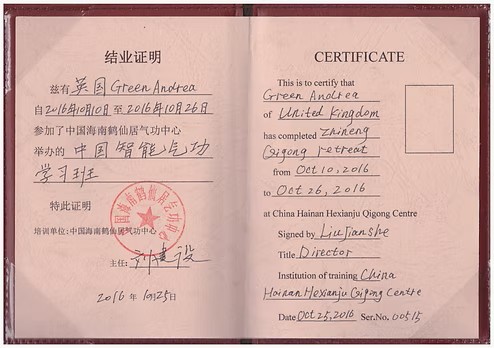 结业证明
兹有 英国 Green Andrea
自2016年10月10日 至 2016年10月26日
参加了中国海南鹤仙居气功中心
举办的 中国智能气功
学习班
特此证明
培训单位:中国海南鹤仙居气功中心
中国海南鹤仙居气功中心
主任: 刘建设
2016 年 10月25日
CERTIFICATE
This is to certify that
Green Andrea
of United Kingdom
has completed Zhineng
Qigong retreat
from Oct 10, 2016
to Oct 26, 2016
at China Hainan Hexianju Qigong Centre
Signed by LiuJianshe
Title Director
Institution of training China
Hainan Hexianju Qigong Centre
Date Oct 25, 2016 Ser.No. 00515